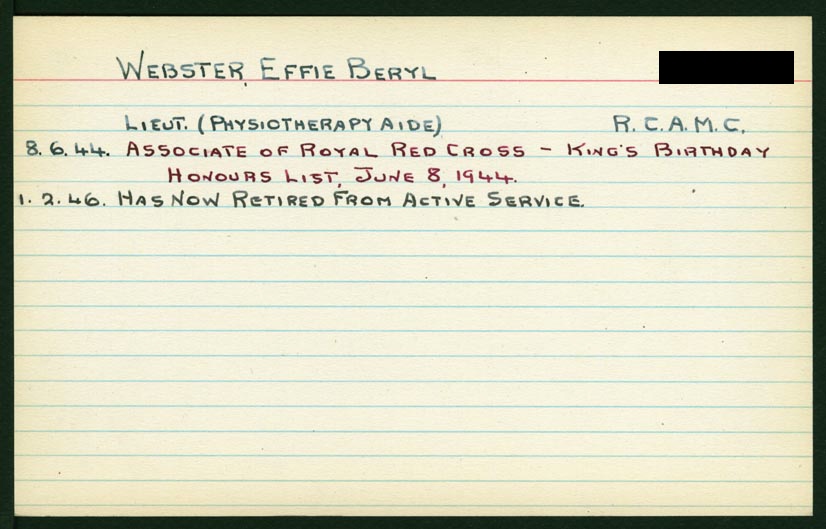 WEBSTER, EFFIE BERYL
LIEUT. (PHYSIOTHERAPY AIDE) R.C.A.M.C.
8.6.44. ASSOCIATE OF ROYAL RED CROSS – KING'S BIRTHDAY
HONOURS LIST, JUNE 8, 1944.
1.2.46. HAS NOW RETIRED FROM ACTIVE SERVICE.